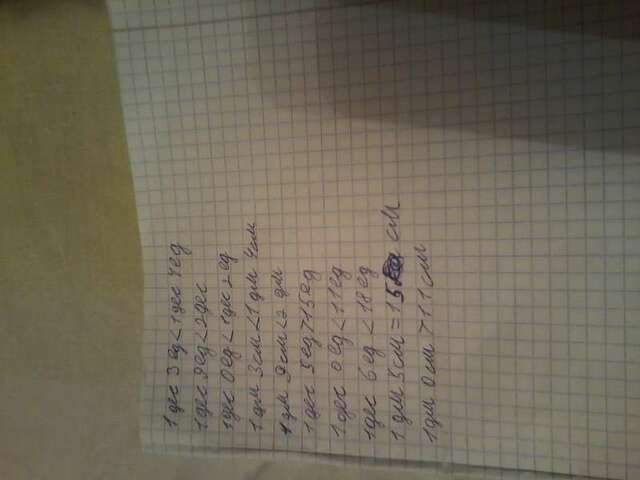 1 дес 3 ед < 1 дес 4 ед
1 дес 9 ед < 2 дес
1 дес 0 ед < 1 дес 2 ед
1 дм 3 см < 1 дм 4 см
1 дм 9 см < 2 дм
1 дес 5 ед > 15 ед
1 дес 0 ед < 11 ед
1 дес 6 ед < 18 ед
1 дм 5 см = 15 см
1 дм 0 см > 11 см